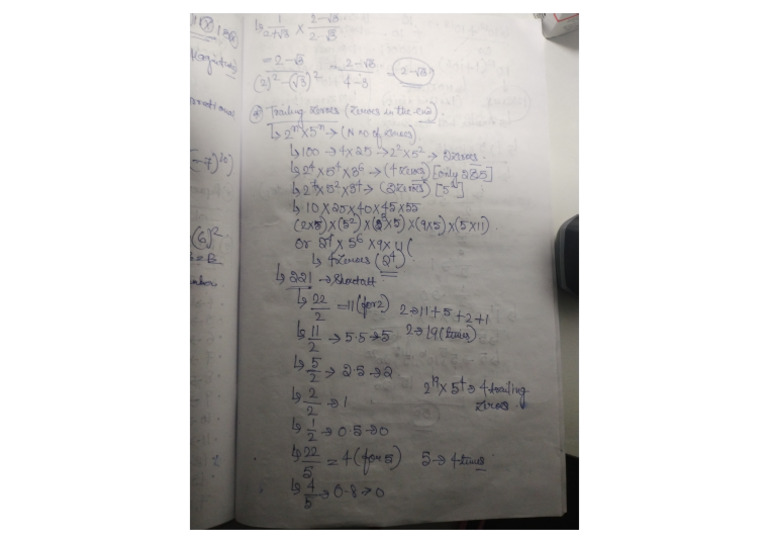 ↳ 1/(2+√3) × (2-√3)/(2-√3)
= (2-√3)/((2)²-(√3)²) = (2-√3)/(4-3) = 2-√3
* Trailing Zeroes (Zeroes in the end)
↳ 2ⁿ×5ⁿ → (N no of Zeroes)
↳ 100 → 4×25 → 2²×5² → 2 Zeroes.
↳ 2⁴×5⁴×3⁶ → (4 Zeroes) [only 2&5]
↳ 2⁴×5²×3⁴ → (2 Zeroes) [5²]
↳ 10×25×40×45×55
(2×5)×(5²)×(2³×5)×(9×5)×(5×11)
or 2⁴×5⁶×9×11
↳ 4 Zeroes (2⁴)
↳ 22! → Shortcut
↳ 22/2 = 11 (for 2) 2→11+5+2+1
↳ 11/2 → 5.5→5 2→19 (times)
↳ 5/2 → 2.5→2
↳ 2/2 → 1 2¹⁹×5⁴→4 trailing
zeroes.
↳ 1/2 → 0.5→0
↳ 22/5 = 4 (for 5) 5→4 times
↳ 4/5 → 0.8→0
(6)²